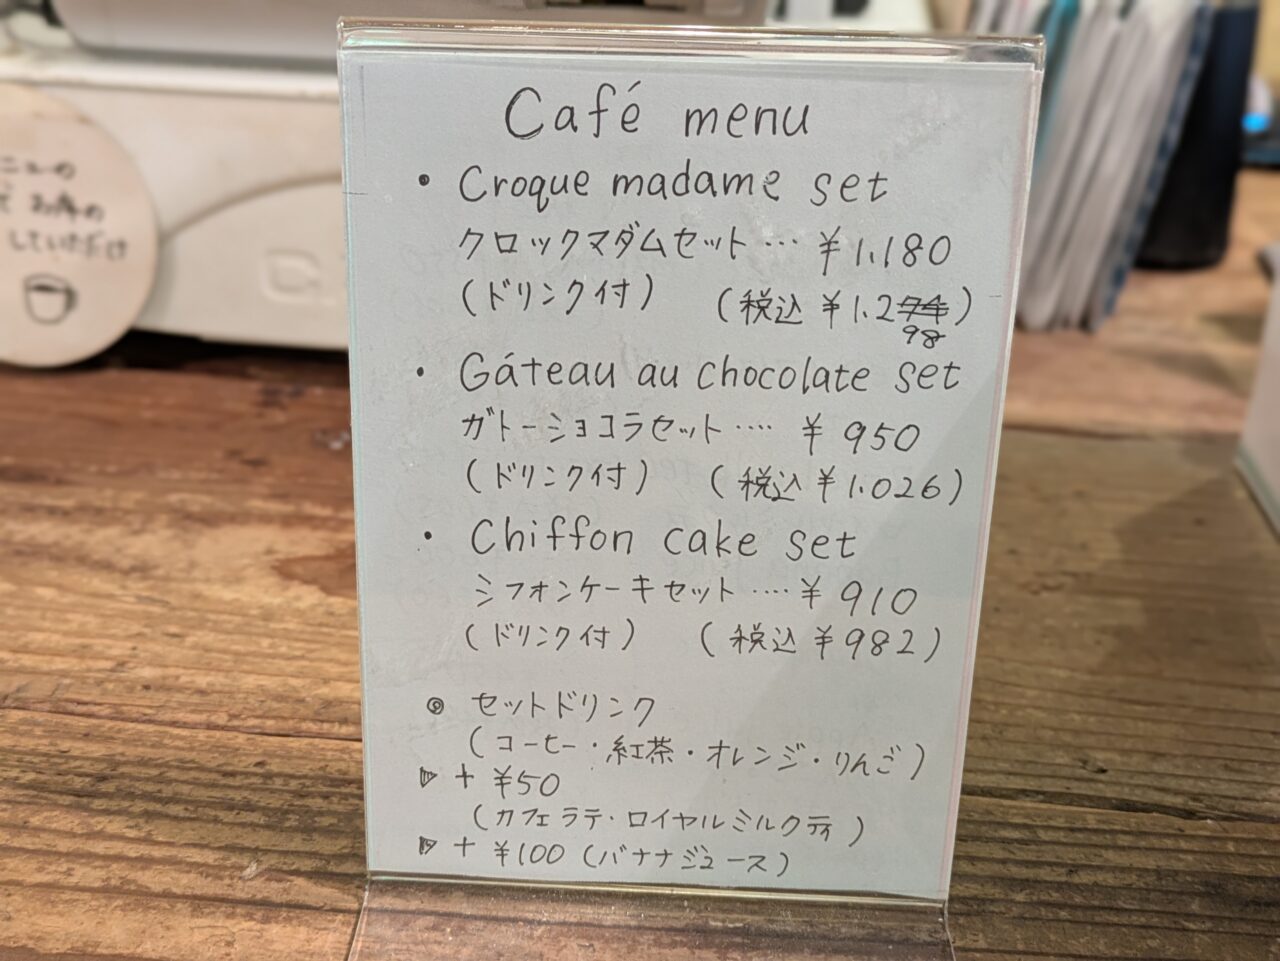 Café menu
• Croque madame set
クロックマダムセット … ¥1.180
(ドリンク付) (税込 ¥1.274)
98
• Gáteau au chocolate set
ガトーショコラセット ‥‥ ¥950
(ドリンク付) (税込 ¥1.026)
• Chiffon cake set
シフォンケーキセット ‥‥ ¥910
(ドリンク付) (税込 ¥982)
◎ セットドリンク
(コーヒー・紅茶・オレンジ・りんご)
▷ + ¥50
(カフェラテ・ロイヤルミルクティ)
▷ + ¥100 (バナナジュース)
していただけ